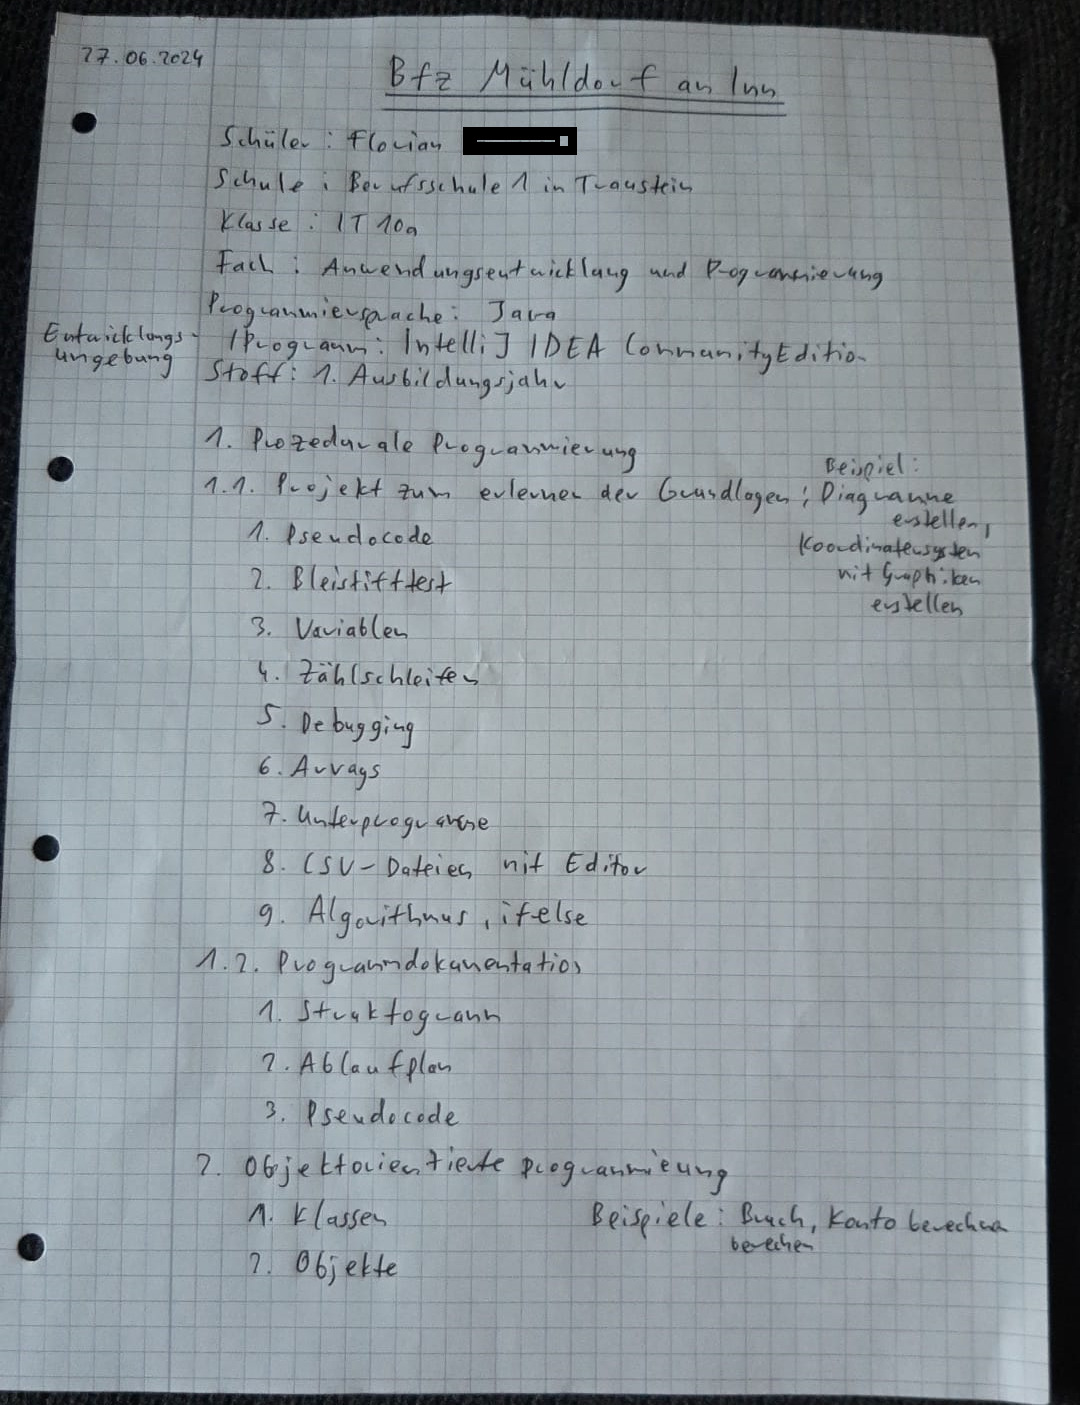 27.06.2024
Bfz Mühldorf an Inn
Schüler: Florian
Schule: Berufsschule 1 in Traustein
Klasse: IT 10a
Fach: Anwendungsentwicklung und Programmierung
Programmiersprache: Java
Entwicklungs-
umgebung
/Programm: IntelliJ IDEA CommunityEdition
Stoff: 1. Ausbildungsjahr
1. Prozedurale Programmierung
1.1. Projekt zum erlernen der Grundlagen; Beispiel: Diagramme
erstellen,
Koordinatensystem
mit Graphiken
erstellen
1. Pseudocode
2. Bleistifttest
3. Variablen
4. Zählschleifen
5. Debugging
6. Arrays
7. Unterprogramme
8. CSV-Dateien mit Editor
9. Algorithmus, ifelse
1.2. Programmdokumentation
1. Struktogramm
2. Ablaufplan
3. Pseudocode
2. Objektorientierte Programmierung
1. Klassen
Beispiele: Bruch, Konto berechnen
berechen
2. Objekte